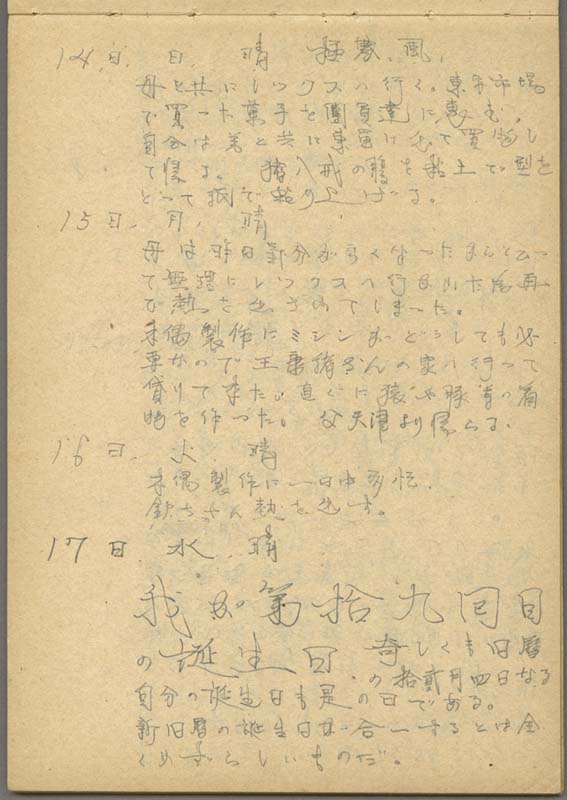 14. 日. 日. 晴 極寒. 風.
母と共にレックスへ行く。東安市場
で買った菓子を團員達に恵む。
自分は弟と共に東單に出て買物し
て帰る。 猪八戒の顔を粘土で型を
とって紙で粘り上げる。
15日. 月. 晴
母は昨日気分が良くなったからと云っ
て無理にレックスへ行かれた為再
び熱を出されてしまった。
木偶製作にミシンがどうしても必
要なので王さんの家へ行って
貸りて来た。直ぐに猿や豚等の着
物を作った。 父天津より帰らる.
16日. 火. 晴
木偶製作に一日中多忙.
ちゃん熱を出す。
17日. 水. 晴
我が第拾九回目
の誕生日. 奇しくも旧暦
の拾貳月四日なる
自分の誕生日も是の日である。
新旧暦の誕生日が合一するとは全
くめずらしいものだ。